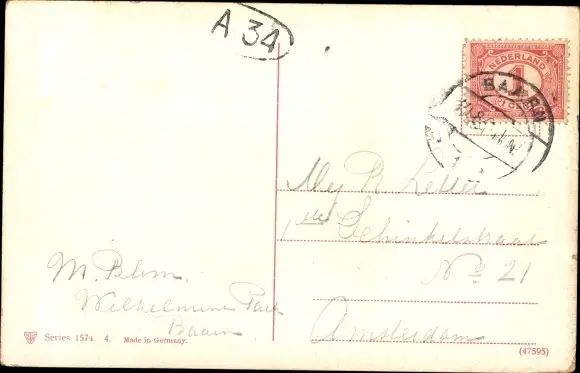 A 34
NEDERLAND
1
CENT
BAARN
Mej R.
1ste Schinkelstraat
No 21
Amsterdam
M. Blom.
Wilhelmina Park
Baarn
Series 1574. 4. Made in Germany.
(47595)